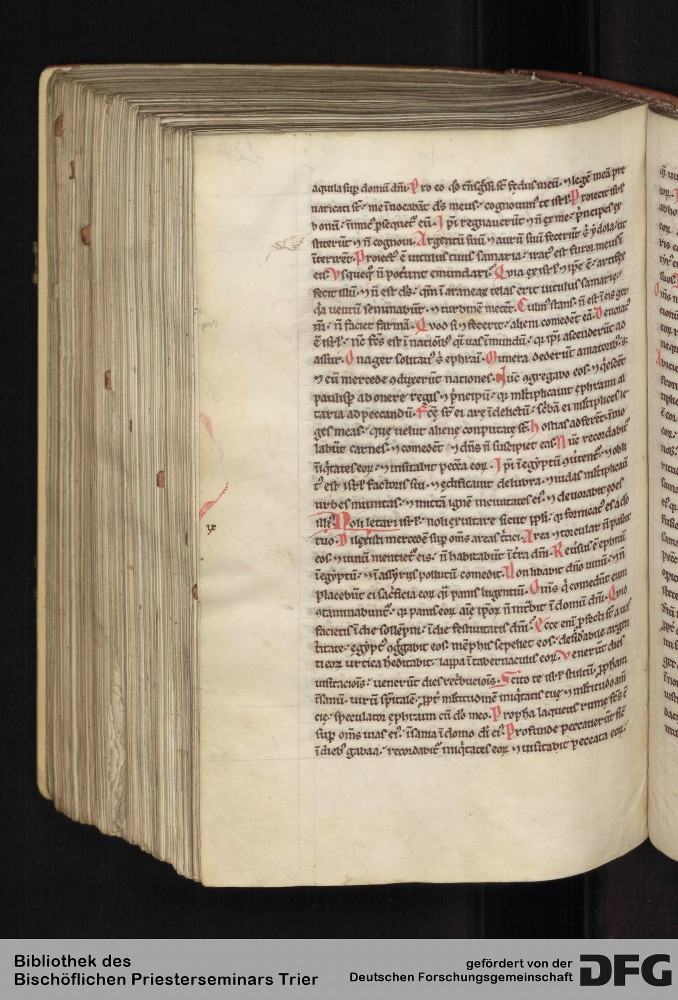 aquila sup domū dñi. Pro eo qđ tñsg̃ssi sт̄ fędus meū. ⁊ legē meā pre
uaricati sт̄. me īnocabūt ds̄ meus. cognouim᷒ te isrł. Proiecit isrł
bonū. inimic᷒ ꝑsequet᷑ eū. Ipi regnauerūt ⁊ ñ ex me. p̃ncipes ex
titerūt ⁊ ñ cognoui. Argentū suū ⁊ aurū suū fecerūt s᷒ ydola. ut
īterirēt. Proiect᷒ ē uitulus tuus samaria. irat᷒ est furor meus ī
eis. Vsquequo ñ poterūt emundari. Quia ex isrł ⁊ ipe ē. artifex
fecit illū. ⁊ ñ est ds̄. qm̄ ī aranearū telas erit uitulus samarię.
q̃a uentū seminabūt. ⁊ turbinē metēt. Culm᷒ stans ñ est ī eis ger
m̄. ñ faciet farinā. Quod si ⁊ fecerit. alieni comedēt eā. Deuorat᷒
ē isrł. nc̄ fc̄s est ī nationib᷒ q̃i uas īmundū. q̃ ipi ascenderūt ad
assur. Onager solitari᷒ s᷒ ephraī. Munera dederūt amatorib᷒.
⁊ cū mercede ɔduxerūt nationes. Nūc ɔgregabo eos. ⁊ q̃escēt
paulisꝑ ab onere regis ⁊ p̃ncipū. q̃ ml̃tiplicauit ephraim al
taria ad peccandū. Fc̄ę sт̄ ei arę ī delictū. sc̃bā ei ml̃tiplices le
ges meas. quę uelut alienę conputatę sт̄. Hostias adferēt. īmo
labūt carnes. ⁊ comedēt ⁊ dñs ñ suscipiet eas. Nūc recordabit᷑
īiq̃tates eoꝝ. ⁊ uisitabit pecc̃a eoꝝ. Ipi ī egyptū ɔuertēt᷑. ⁊ obli
t᷒ est isrł factoris sui. ⁊ ędificauit delubra. ⁊ iudas ml̃tiplicauit
urbes munitas. ⁊ mittā ignē ī ciuitates ei᷒. ⁊ deuorabit ędes
illi᷒. Noli letari isrł. noli exultare sicut ppłi. q̃ fornicat᷒ es a do
tuo. Dilexisti mercedē sup om̄s areas t̃tici. Area ⁊ torcular ñ pascet
eos. ⁊ uinū mentiet᷑ eis. ñ habitabūt ī t̃ra dñi. Reuersus ē ephraī
ī egyptū. ⁊ ī assyriis pollutū comedit. Non libabūt dño uinū. ⁊ ñ
placebūt ei sac̃ficia eoꝝ q̃i panis lugentiū. Om̄s q̃ comedūt eum
ɔtaminabunt᷑. q̃ panis eoꝝ aīę ipoꝝ ñ int̃bit ī domū dñi. Quid
facietis ī die sollēpni. ī die festiuitatis dñi. Ecce enī ꝓfecti sт̄ a uas
titate. ęgypt᷒ ɔg̃gabit eos. mēphis sepeliet eos. desid̃abile argen
ti eoꝝ urtica h̃editabit. lappa ī tabernaculis eoꝝ. Venerūt dies
uisitacionis. uenerūt dies ret̃butionis. Scito te isrł stultū. ꝓpħam
īsanū. uirū sp̄italē. ꝓpt̃ ml̃titudinē iniq̃tatis tuę. ⁊ ml̃titudo am̄
cię. speculator ephraim cū do meo. Propħa laqueus ruinę fc̄s ē
sup om̄s uias ei᷒. īsania ī domo di ei᷒. Profunde peccauerūt sic̄
ī dieb᷒ gabaa. recordabit᷑ iniq̃tates eoꝝ ⁊ uisitabit peccata eoꝝ.
Bibliothek des
Bischöflichen Priesterseminars Trier
gefördert von der
Deutschen Forschungsgemeinschaft
DFG